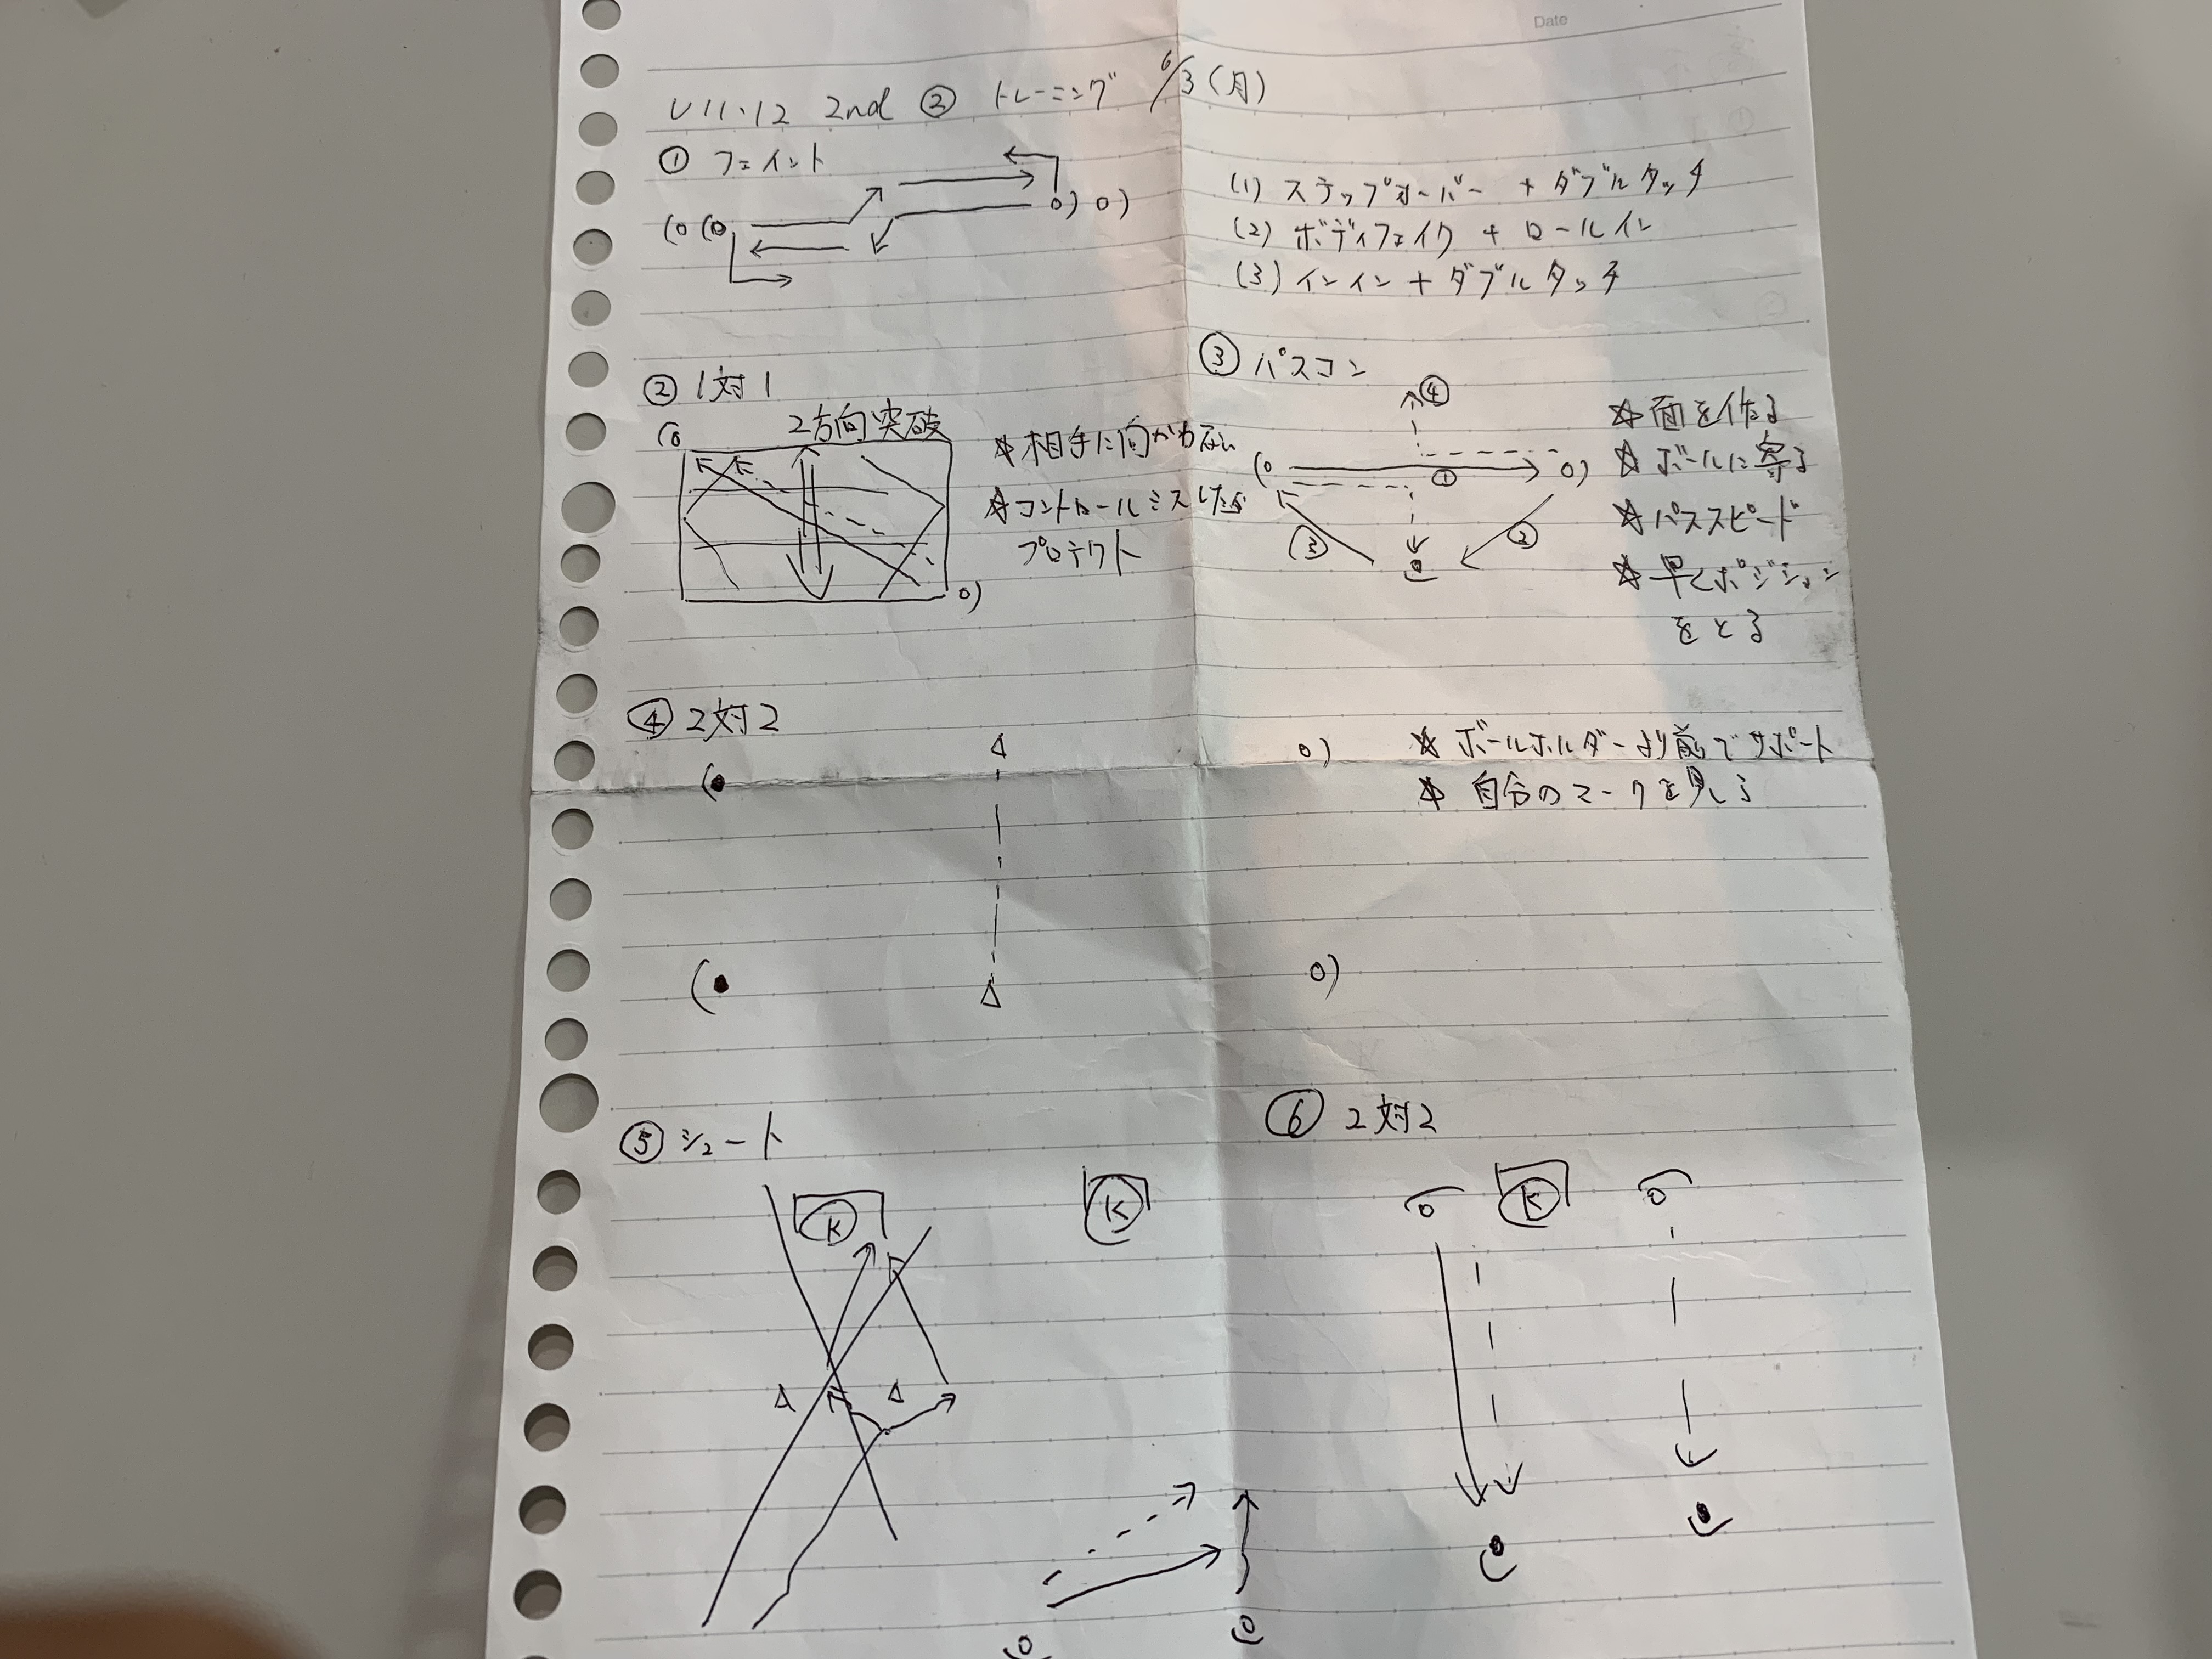 Date
U11・12 2nd ② トレーニング 6/3(月)
① フェイント
(1) ステップオーバー + ダブルタッチ
(2) ボディフェイク + ロールイン
(3) インイン + ダブルタッチ
② 1対1
2方向突破
☆ 相手に向かわない
☆ コントロールミスしたら
プロテクト
③ パスコン
④
①
②
③
☆ 面を作る
☆ ボールに寄る
☆ パススピード
☆ 早くポジション
をとる
④ 2対2
☆ ボールホルダーより前でサポート
☆ 自分のマークを見る
⑤ シュート
K
K
⑥ 2対2
K